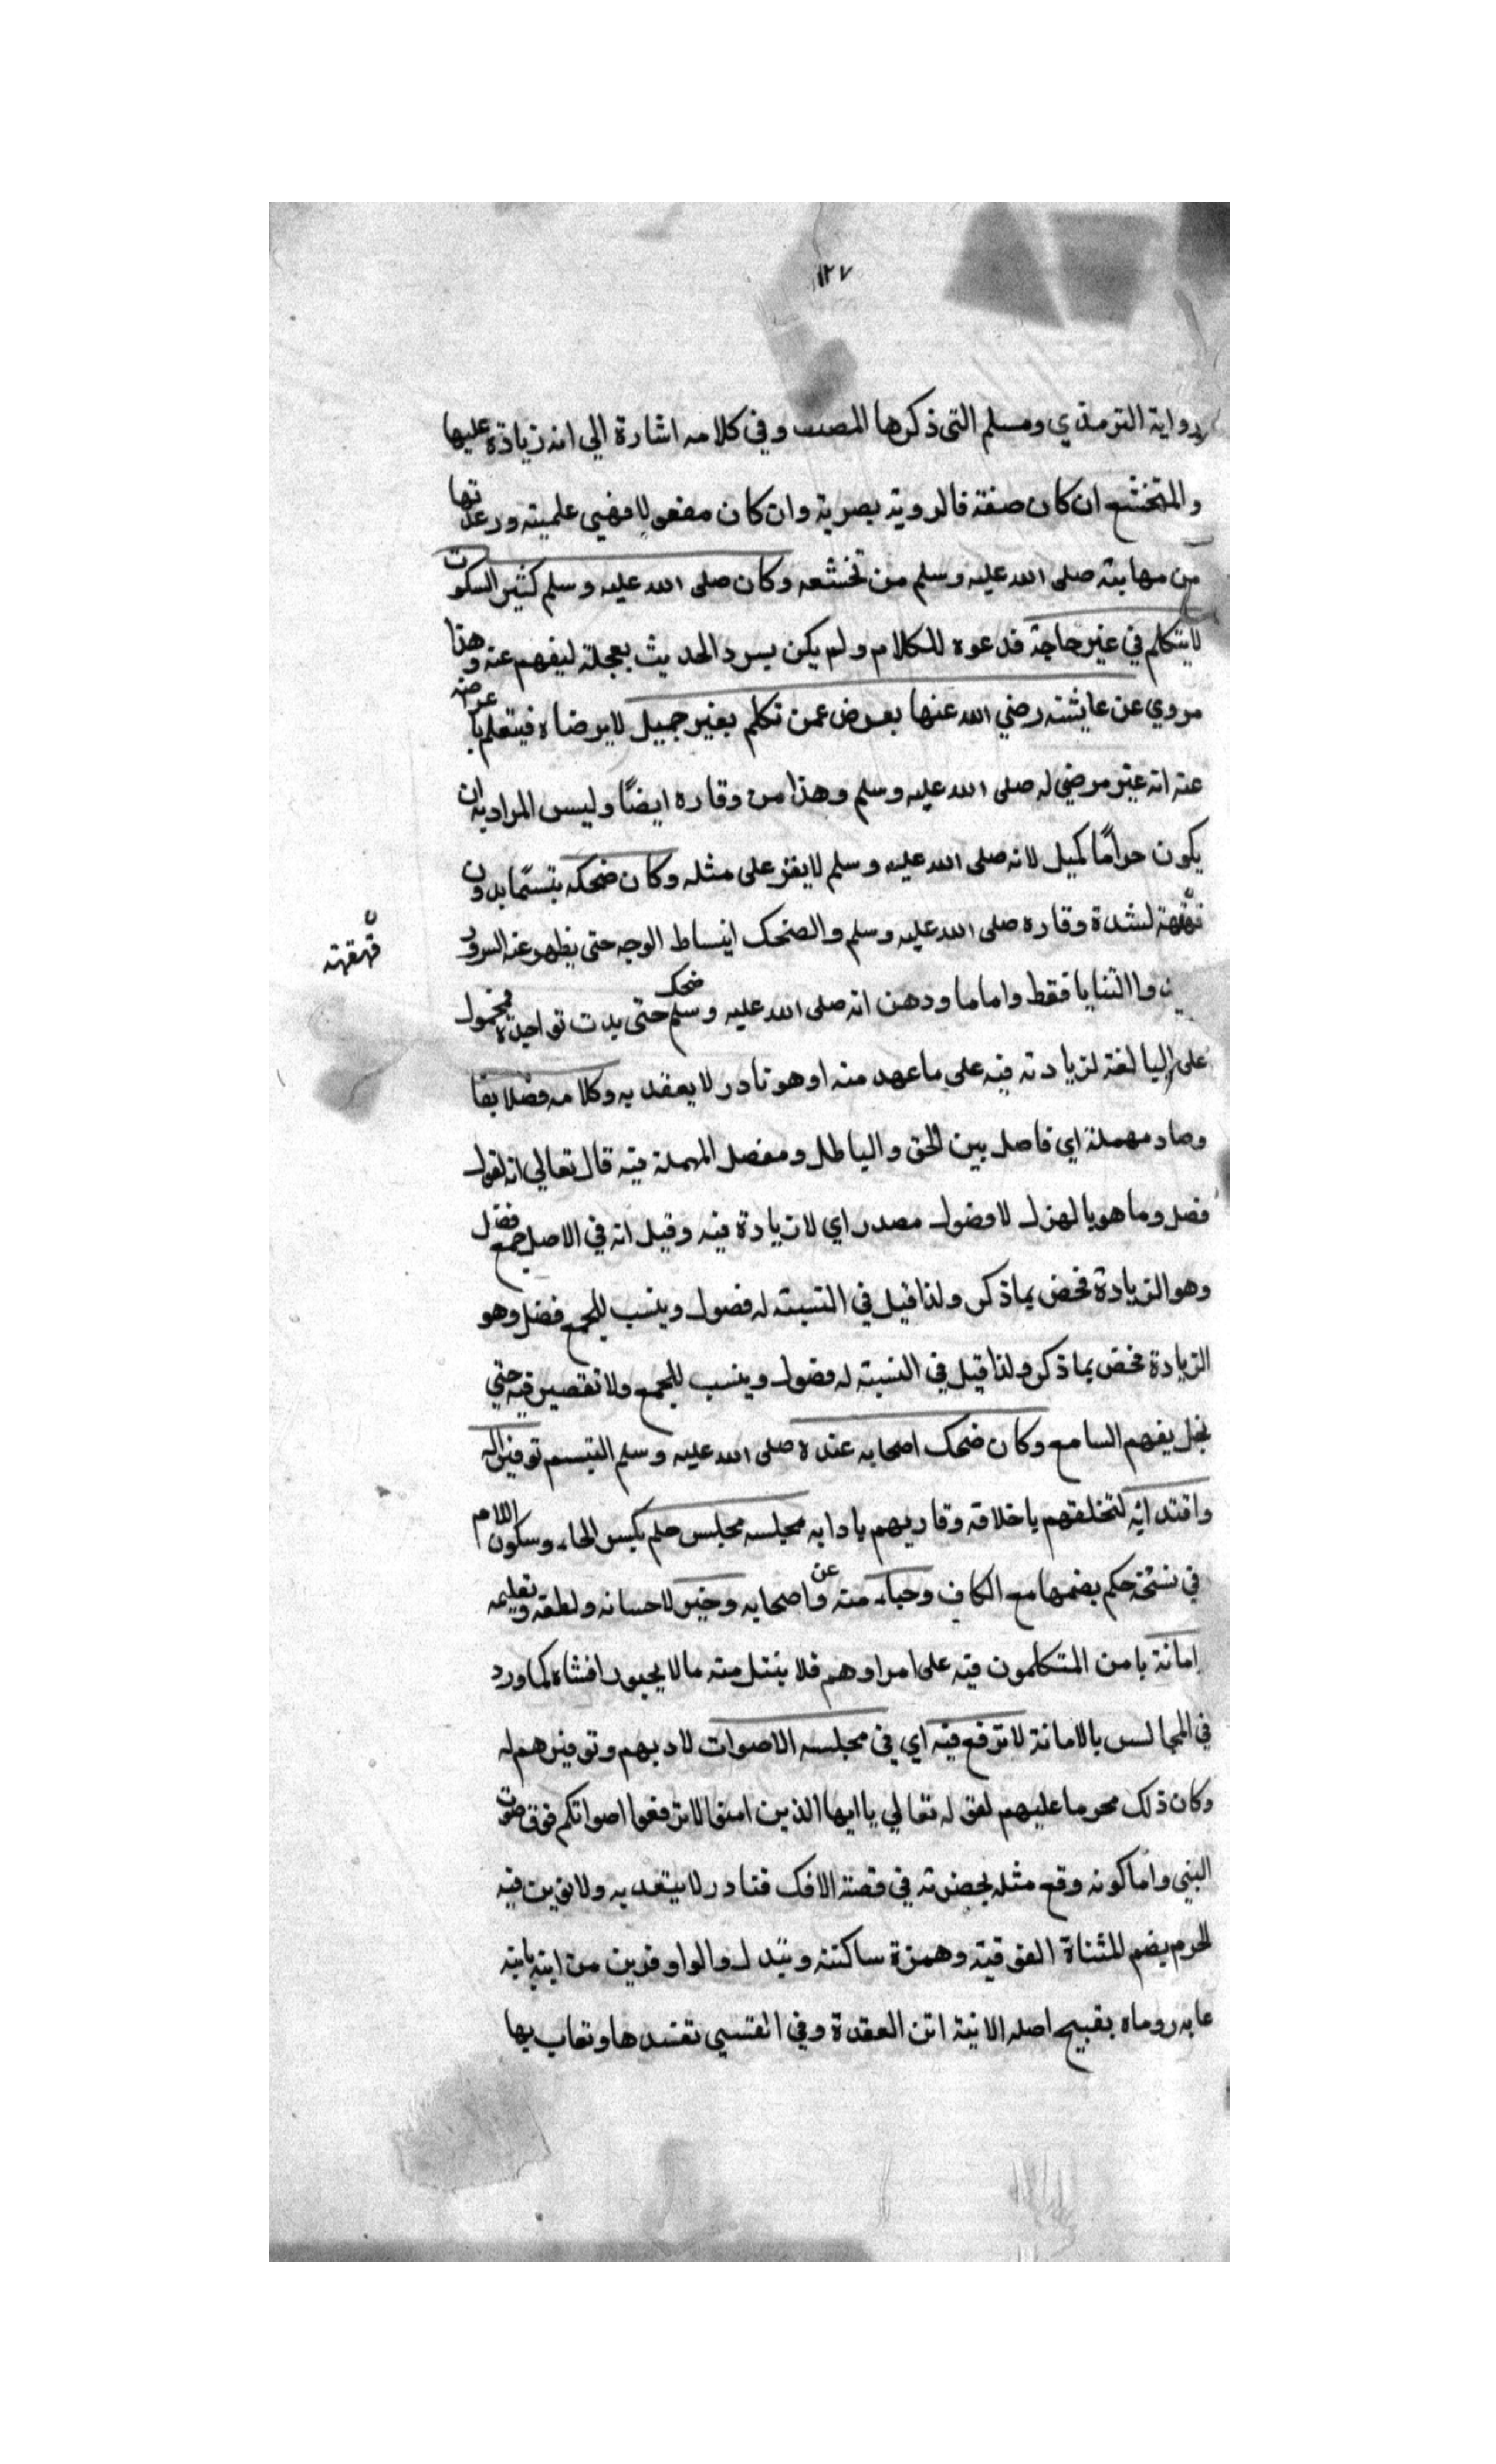 ١٢٧
رواية الترمذي ومسلم التي ذكرها المصنف وفي كلامه اشارة الي انه زيادة عليها
والمتخشع ان كان صفة فالروية بصرية وان كان مفعولا فهي علمية ورعدتها
من مهابته صلى الله عليه وسلم من تخشعه وكان صلى الله عليه وسلم كثير السكوت
لا يتكلم في غير حاجة فدعوه للكلام ولم يكن يسرد الحديث بعجلة ليفهم عنه وهذا
مروي عن عايشة رضي الله عنها يعرض عمن تكلم بغير جميل لا يرضاه فيتعلم باعراضه
عنه انه غير مرضي له صلى الله عليه وسلم وهذا من وقاره ايضًا وليس المراد به ان
يكون حرامًا كميل لانه صلى الله عليه وسلم لا يقر على مثله وكان ضحكه تبسمًا بدون
قهقهة لشدة وقاره صلى الله عليه وسلم والضحك انبساط الوجه حتى يظهر عنه السرور
قهقهته
وا الثنايا فقط واما ما ودهن انه صلى الله عليه وسلم ضحك حتى بدت نواجذه فمحمول
على المبالغة لزيادته فيه على ما عهد منه او هو نادر لا يعقد به وكلامه فصلا بفا
وصاد مهملة اي فاصل بين الحق والباطل ومفصل المهملة فيه قال تعالي انه لقول
فصل وما هو بالهزل لا فضول مصدر اي لا زيادة فيه وقيل انه في الاصل جمع فضل
وهو الزيادة فخص بما ذكر ولذا قيل في النسبة له فضول وينسب للجمع فضل وهو
الزيادة فخص بما ذكر ولذا قيل في النسبة له فضول وينسب للجمع ولا تقصير فيه حتي
يخل بفهم السامع وكان ضحك اصحابه عنده صلى الله عليه وسلم التبسم توقير اله
واقتدائه لتخلقهم باخلاقه وقاريهم بادابه مجلسه مجلس حلم بكسر الحاء وسكون اللام
في نسخة حكم بضمها مع الكاف وحياء منه وعن اصحابه وخير لاحسانه ولطفه وتعليمه
امانة يامن المتكلمون فيه على امراوهم فلا ينتل منه ما لا يحبون افشاه كما ورد
في المجالس بالامانة لا ترفع فيه اي في مجلسه الاصوات لادبهم وتوقيرهم له
وكان ذلك محرما عليهم لقوله تعالي يا ايها الذين امنوا لا ترفعوا اصواتكم فوق صوت
النبي واما كونه وقع مثله بحضرته في قصة الافك فنادر لا يعتد به ولا توبن فيه
الحرم بضم المثناة الفوقية وهمزة ساكنة وتبدل والواو فوبن من ابنه يابنه
عابه روماه بقبيح اصله الابنة ابن العقدة وفي القسي تفسدها وتعاب بها